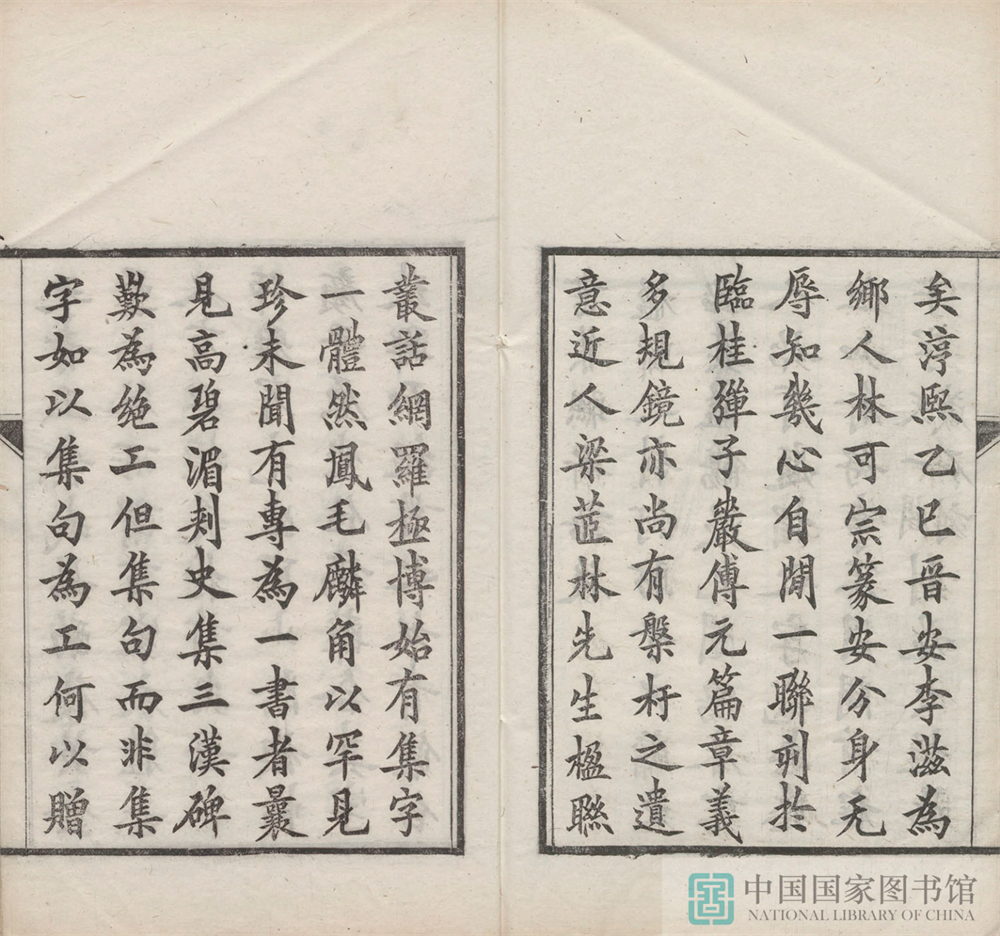 矣淳熙乙巳晉安李滋為
鄉人林可宗篆安分身无
辱知幾心自閒一聯刻於
臨桂彈子巖傅元篇章義
多規鏡亦尚有槃杅之遺
意近人梁茝林先生楹聯
叢話網羅極博始有集字
一體然鳳毛麟角以罕見
珍未聞有專為一書者曩
見高碧湄刺史集三漢碑
歎為絕工但集句而非集
字如以集句為工何以贈
中国国家图书馆
NATIONAL LIBRARY OF CHINA